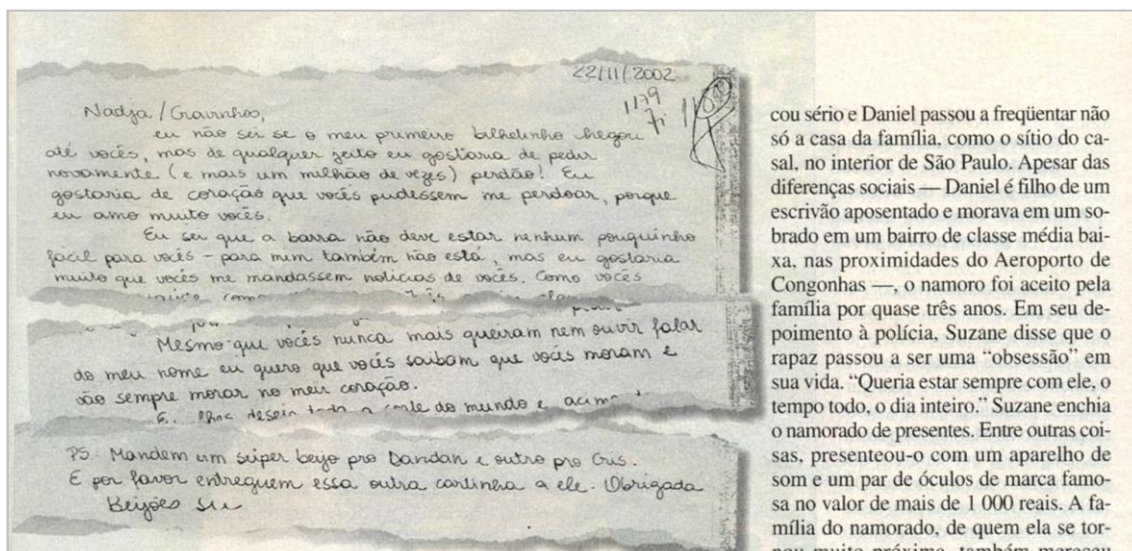 22/11/2002
1179
Nadja / Cravinhos,
eu não sei se o meu primeiro bilhetinho chegou
até vocês, mas de qualquer jeito eu gostaria de pedir
novamente (e mais um milhão de vezes) perdão! Eu
gostaria de coração que vocês pudessem me perdoar, porque
eu amo muito vocês.
Eu sei que a barra não deve estar nenhum pouquinho
fácil para vocês - para mim também não está, mas eu gostaria
muito que vocês me mandassem notícias de vocês. Como vocês
Mesmo que vocês nunca mais queiram nem ouvir falar
do meu nome eu quero que vocês saibam que vocês moram e
vão sempre morar no meu coração.
do mundo e
PS: Mandem um súper beijo pro Dandan e outro pro Cris.
E por favor entreguem essa outra cartinha a ele. Obrigada
Beijões Su
cou sério e Daniel passou a freqüentar não
só a casa da família, como o sítio do ca-
sal, no interior de São Paulo. Apesar das
diferenças sociais — Daniel é filho de um
escrivão aposentado e morava em um so-
brado em um bairro de classe média bai-
xa, nas proximidades do Aeroporto de
Congonhas —, o namoro foi aceito pela
família por quase três anos. Em seu de-
poimento à polícia, Suzane disse que o
rapaz passou a ser uma “obsessão” em
sua vida. “Queria estar sempre com ele, o
tempo todo, o dia inteiro.” Suzane enchia
o namorado de presentes. Entre outras coi-
sas, presenteou-o com um aparelho de
som e um par de óculos de marca famo-
sa no valor de mais de 1 000 reais. A fa-
mília do namorado, de quem ela se tor-
nou muito próxima, também mereceu